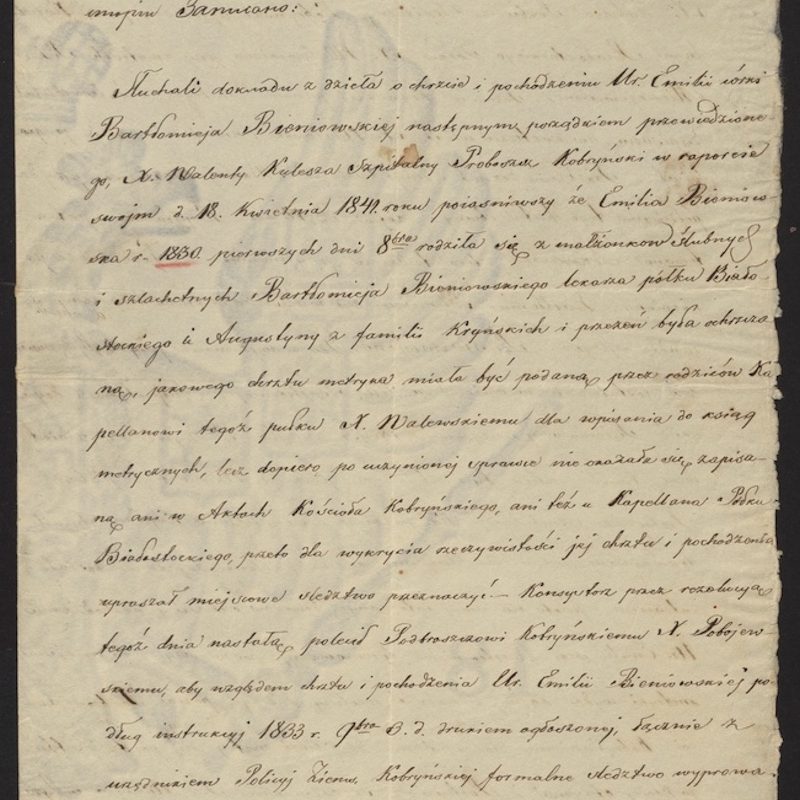 Zanucono:
Słuchali dokładu z dzieła o chrzcie i pochodzeniu Ur. Emilii córki
Bartłomieja Bieniowskiej następnym porządkiem przewiedzione-
go, X. Walenty Kulesza Szpitalny Proboszcz Kobryński w raporcie
swojm d. 18. Kwietnia 1841. roku poiasniwszy że Emilia Bieniow-
ska r. 1830. pierwszych dni 8bra rodziła się z małżonkow ślubnych
i szlachetnych Bartłomieja Bieniowskiego lekarza półku Biało-
stockiego i Augustyny z familii Kryńskich i przezeń była ochrzczo
ną, jakowego chrztu metryka miała być podaną przez rodziców Ka
pellanowi tegoż pułku X. Walewskiemu dla wpisania do ksiąg
metrycznych, lecz dopiero po uczynionej sprawie nie okazała się zapisa-
ną ani w Aktach Kościoła Kobryńskiego, ani też u Kapellana Półku
Białostockiego, przeto dla wykrycia rzeczywistości jej chrztu i pochodzenia
upraszał miejscowe sledztwo przeznaczyć – Konsystorz przez rezolucyą
tegoż dnia nastałą polecił Podbroszczowi Kobryńskiemu X. Pobojew-
skiemu, aby względem chrztu i pochodzenia Ur. Emilii Bieniowskiej po-
dług instrukcyj 1833 r. 9bra 3. d. drukiem ogłoszonej, łącznie z
urzędnikiem Policyj Ziems. Kobryńskiej formalne sledztwo wyprowa-